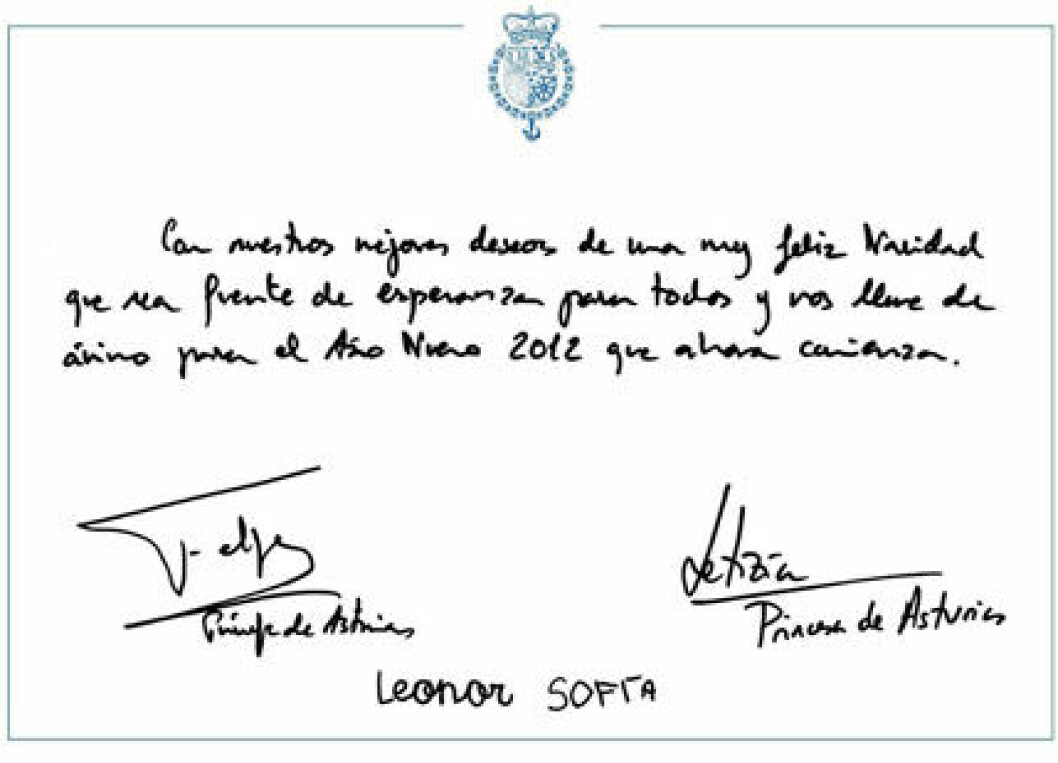 Con nuestros mejores deseos de una muy feliz Navidad
que sea fuente de esperanza para todos y nos llene de
ánimo para el Año Nuevo 2012 que ahora comienza.
Felipe Letizia
Príncipe de Asturias Princesa de Asturias
Leonor SOFIA